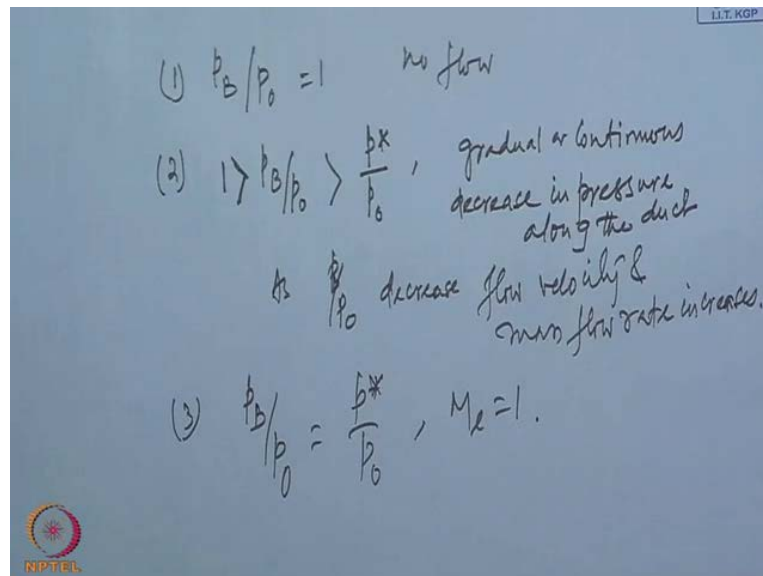 I.I.T. KGP
(1) p_B/p_0 = 1 no flow
(2) 1 > p_B/p_0 > p*/p_0 , gradual or continuous
decrease in pressure
along the duct
As p/p_0 decrease flow velocity &
mass flow rate increases.
(3) p_B/p_0 = p*/p_0 , M_e = 1.
NPTEL